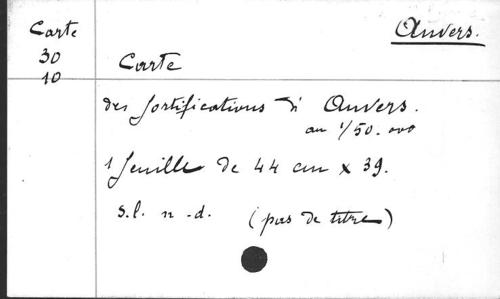 Carte
30
10
Anvers.
Carte
des fortifications d'Anvers.
au 1/50.000
1 feuille de 44 cm x 39.
s.l. n-d. (pas de titre)